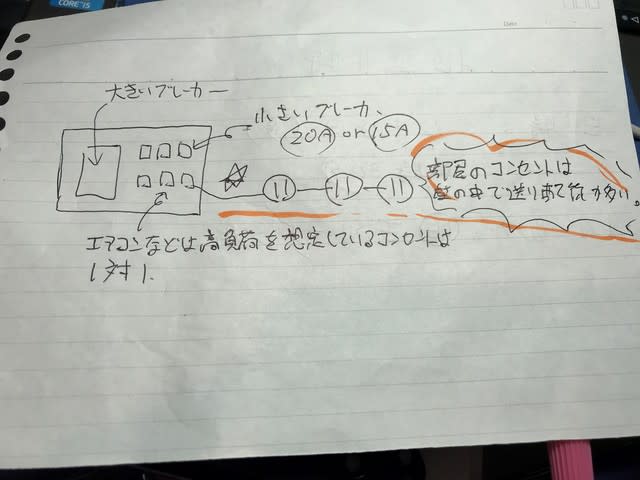 CORE i5
Date
大きいブレーカー
小さいブレーカ、
20A or 15A
部屋のコンセントは
壁の中で送り配
が多い。
エアコンなどは高負荷を想定しているコンセントは
1対1.